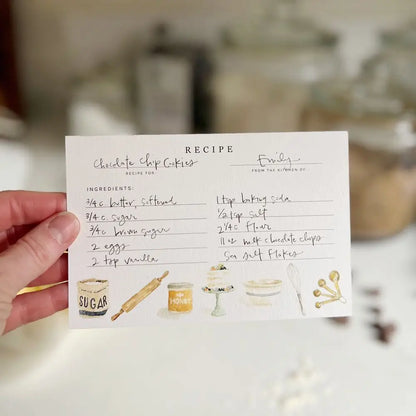 RECIPE
Chocolate Chip Cookies
Emily
RECIPE FOR
FROM THE KITCHEN OF
INGREDIENTS:
3/4 c. butter, softened
3/4 c. sugar
3/4 c. brown sugar
2 eggs
2 tsp vanilla
1 tsp baking soda
1/2 tsp salt
2 1/4 c. flour
11 oz milk chocolate chips
Sea salt flakes
SUGAR
HONEY